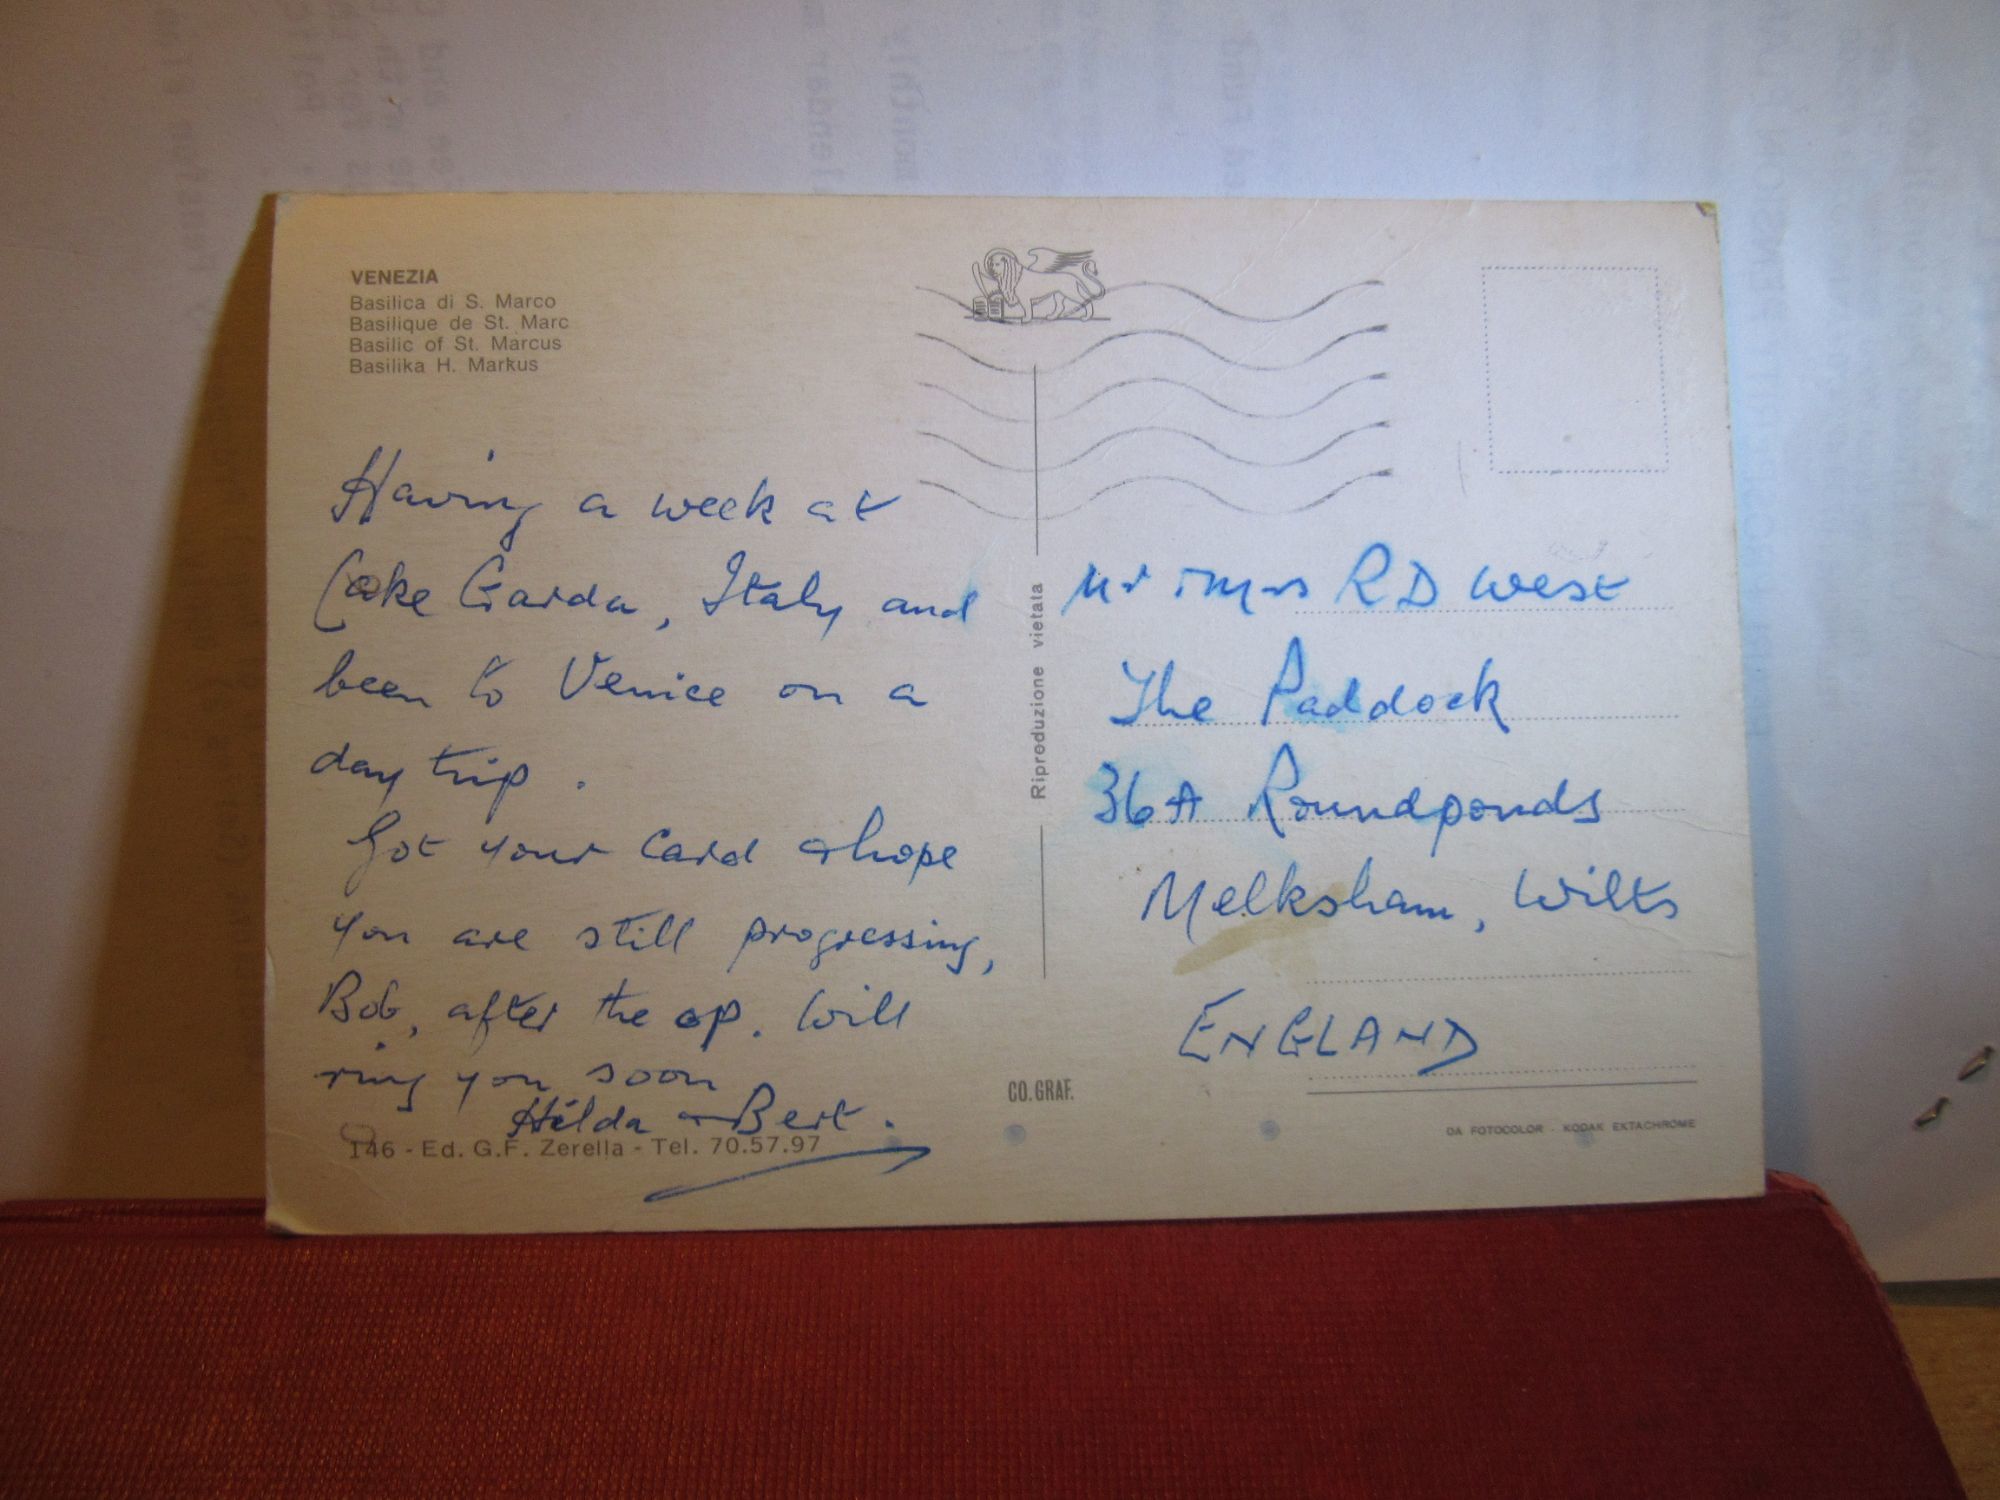 VENEZIA
Basilica di S. Marco
Basilique de St. Marc
Basilic of St. Marcus
Basilika H. Markus
Having a week at
Lake Garda, Italy and
been to Venice on a
day trip.
Got your card & hope
you are still progressing,
Bob, after the op. Will
ring you soon
Hilda & Bert.
146 - Ed. G.F. Zerella - Tel. 70.57.97
Riproduzione vietata
CO. GRAF.
Mr & Mrs RD West
The Paddock
36A Roundponds
Melksham, Wilts
ENGLAND
DA FOTOCOLOR - KODAK EKTACHROME